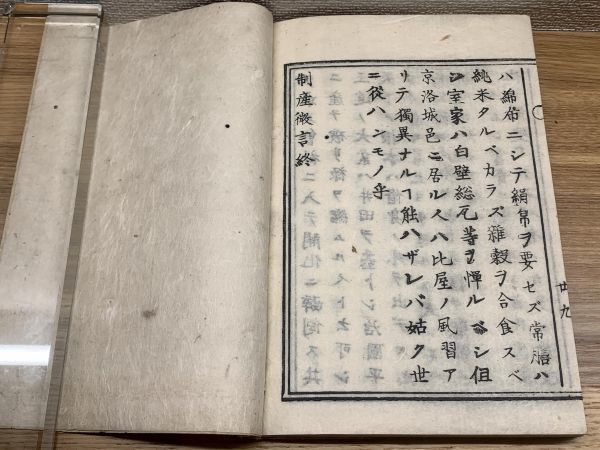 ハ綿布ニシテ絹帛ヲ要セズ常膳ハ
純米タルベカラズ雑穀ヲ合食スベ
シ室家ハ白壁総瓦等ヲ憚ルベシ但
京洛城邑ニ居ル人ハ比屋ノ風習ア
リテ獨異ナルヿ能ハザレバ姑ク世
ニ從ハンモノ乎
制産微言終
廿九